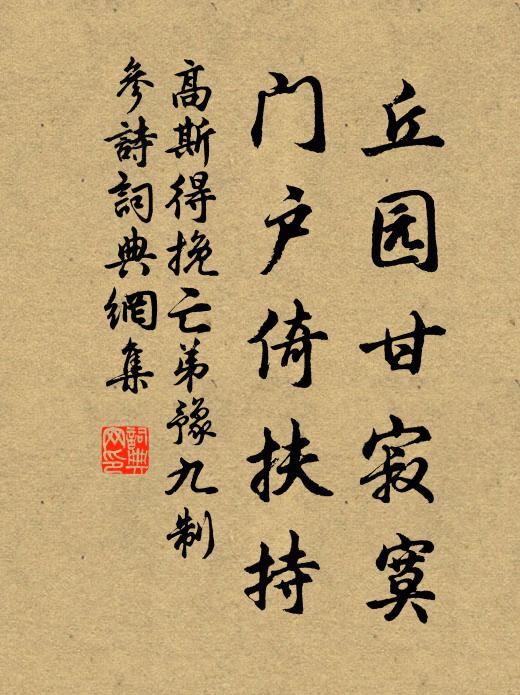 丘园甘寂寞
门户倚扶持
高斯得挽亡弟豫九制
參詩詞典網集
詞典
网印